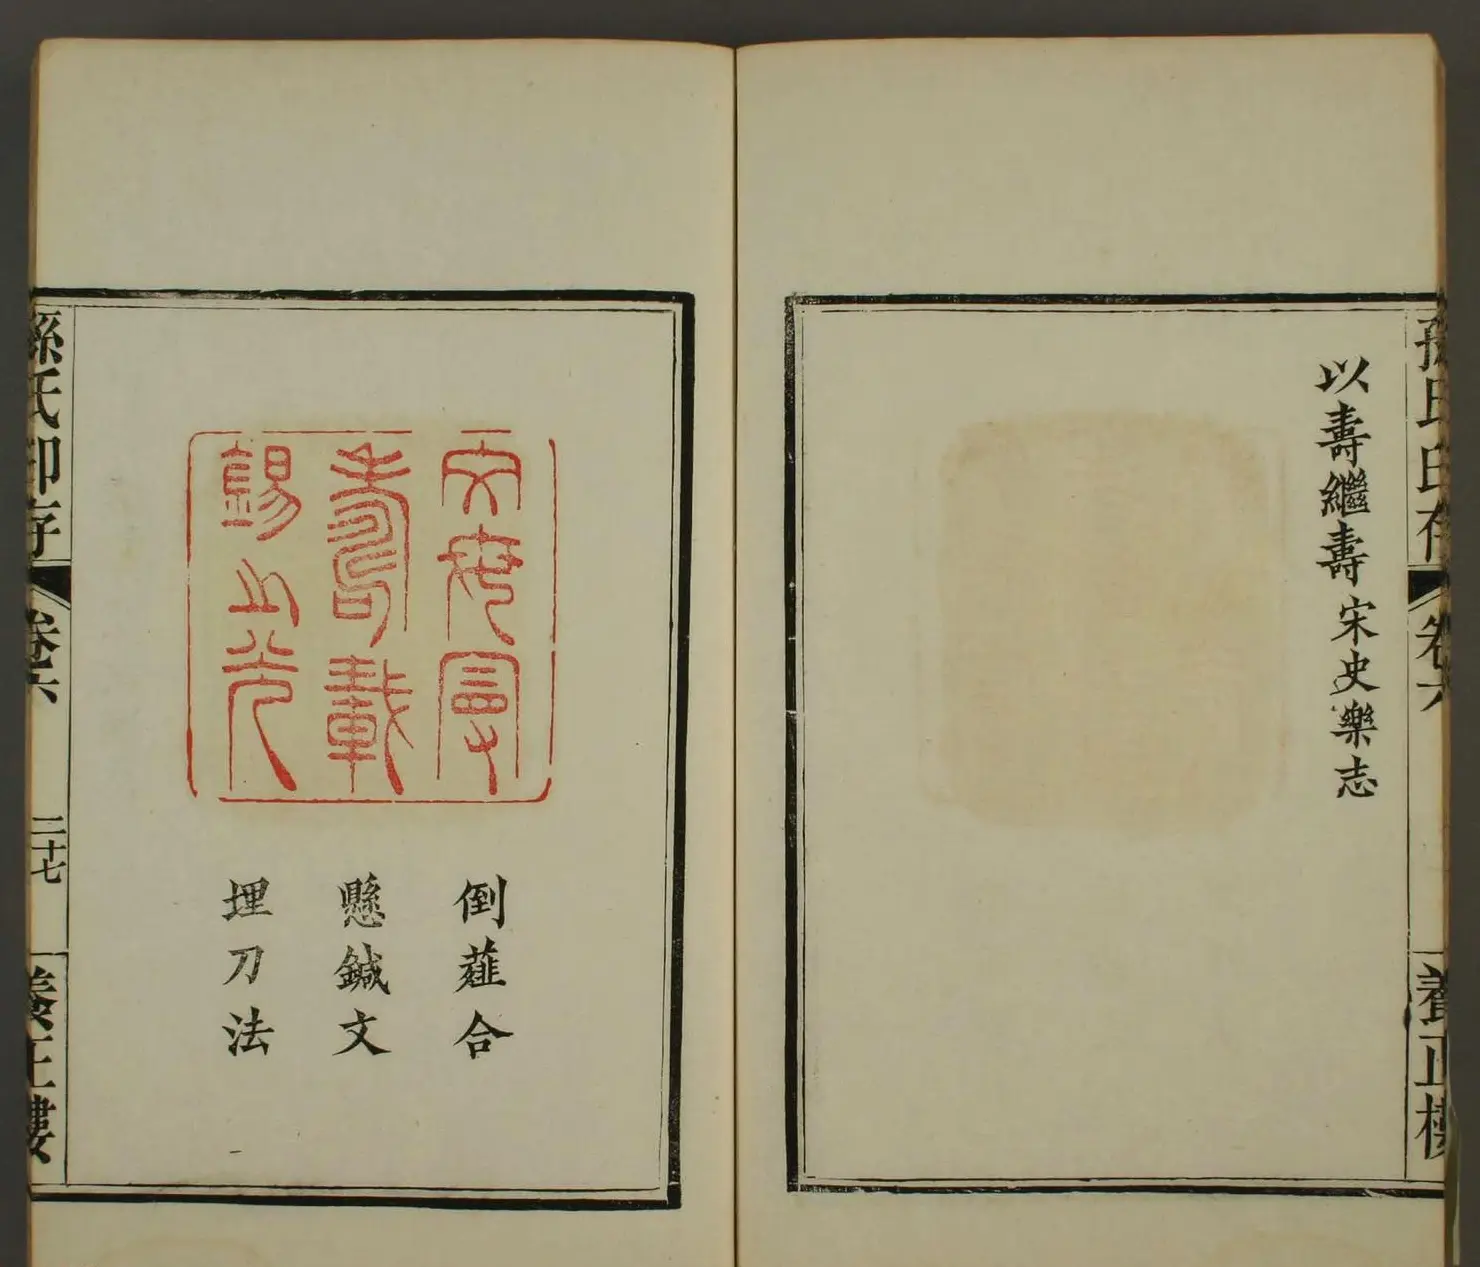 孫氏印存
卷六
養正樓
以壽繼壽宋史樂志
文
壽載
錫之光
倒薤合
懸鍼文
埋刀法
孫氏印存
卷六
二十七
養正樓